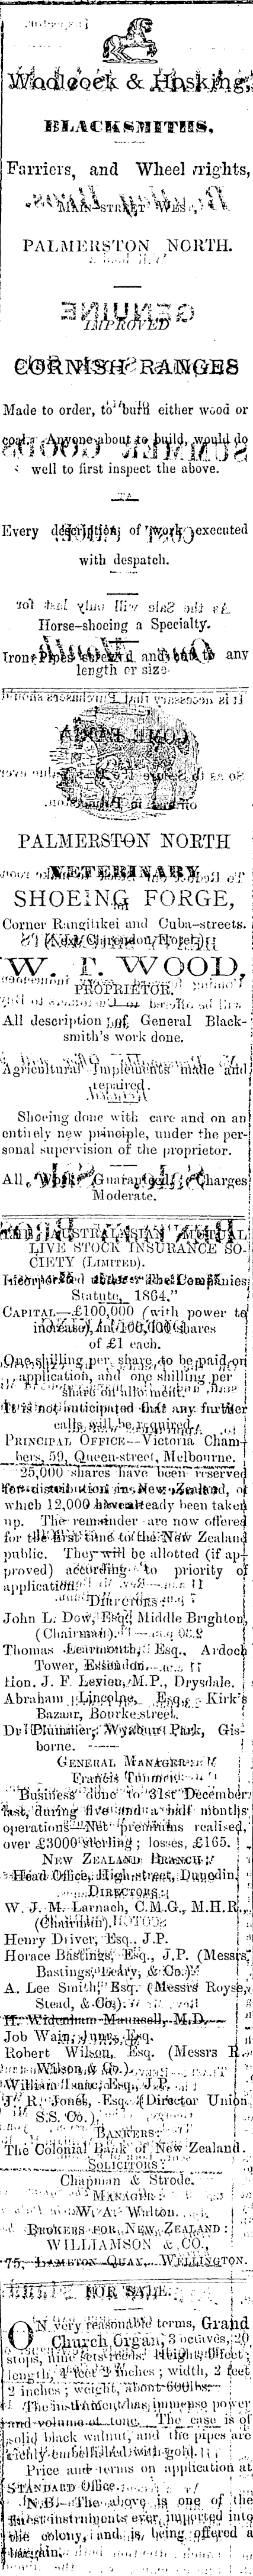 Woollcock & Hosking,
BLACKSMITHS,
Farriers, and Wheelwrights,
MAIN-STREET WEST,
PALMERSTON NORTH.
IMPROVED
CORNISH RANGES
Made to order, to burn either wood or
coal. Anyone about to build, would do
well to first inspect the above.
Every description of work executed
with despatch.
Horse-shoeing a Specialty.
Iron Pipes and any
length or size.
PALMERSTON NORTH
VETERINARY
SHOEING FORGE,
Corner Rangitikei and Cuba-streets.
(Next Clarendon Hotel)
W. T. WOOD,
PROPRIETOR.
All description of General Black-
smith's work done.
Agricultural Implements made and
repaired.
Shoeing done with care and on an
entirely new principle, under the per-
sonal supervision of the proprietor.
All Work Guaranteed. Charges
Moderate.
THE AUSTRALASIAN MUTUAL
LIVE STOCK INSURANCE SO-
CIETY (LIMITED).
Incorporated under "The Companies
Statute, 1864."
CAPITAL—£100,000 (with power to
increase), in 100,000 shares
of £1 each.
One shilling per share to be paid on
application, and one shilling per
share on allotment.
It is not anticipated that any further
calls will be required.
PRINCIPAL OFFICE—Victoria Cham-
bers, 59, Queen-street, Melbourne.
25,000 shares have been reserved
for distribution in New Zealand, of
which 12,000 have already been taken
up. The remainder are now offered
for the first time to the New Zealand
public. They will be allotted (if ap-
proved) according to priority of
application.
DIRECTORS:
John L. Dow, Esq., Middle Brighton,
(Chairman).
Thomas Learmonth, Esq., Ardoch
Tower, Essendon.
Hon. J. F. Levien, M.P., Drysdale.
Abraham Lincolne, Esq., Kirk's
Bazaar, Bourke street.
Dr Plummer, Park, Gis-
borne.
GENERAL MANAGER:
Francis
Business done to 31st December
last, during five and a half months'
operations—Net premiums realised,
over £3000 sterling; losses, £165.
NEW ZEALAND BRANCH:
Head Office, High-street, Dunedin.
DIRECTORS:
W. J. M. Larnach, C.M.G., M.H.R.,
(Chairman).
Henry Driver, Esq., J.P.
Horace Bastings, Esq., J.P. (Messrs
Bastings, Leary, & Co.)
A. Lee Smith, Esq. (Messrs Royse,
Stead, & Co.).
H. Widenham Maunsell, M.D.
Job Wain, Junr., Esq.
Robert Wilson, Esq. (Messrs R.
Wilson & Co.).
William Isaac, Esq., J.P.
J. R. Jones, Esq. (Director Union
S.S. Co.),
BANKERS:
The Colonial Bank of New Zealand.
SOLICITORS:
Chapman & Strode.
MANAGER:
W. A. Walton.
BROKERS FOR NEW ZEALAND:
WILLIAMSON & CO.,
75, LAMBTON QUAY, WELLINGTON.
FOR SALE.
ON very reasonable terms, Grand
Church Organ, 3 octaves, 20
stops, Height,
length, 4 feet 2 inches; width, 2 feet
2 inches; weight, about 600lbs.
The instrument has immense power
and volume of tone. The case is of
solid black walnut, and the pipes are
richly embellished with gold.
Price and terms on application at
STANDARD Office.
N.B.—The above is one of the
finest instruments ever imported into
the colony, and is being offered a
bargain.